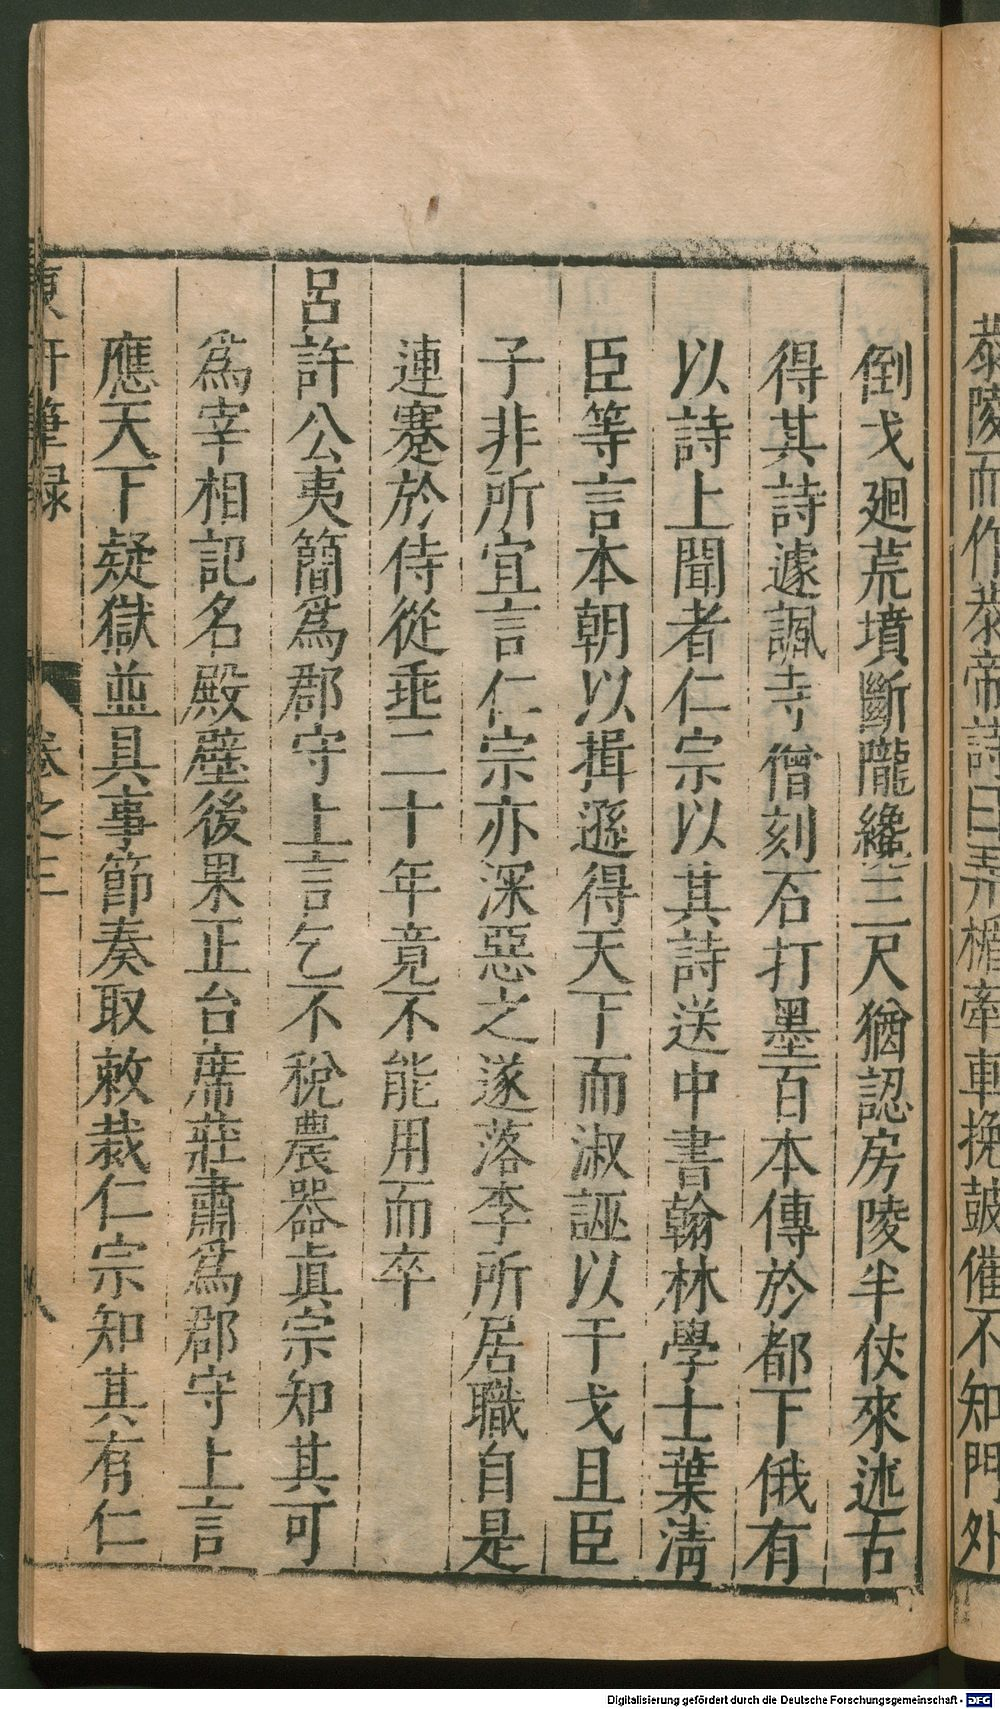 恭陵而作恭帝詩曰弄楯牽車挽皷催不知門外
倒戈廻荒墳斷隴纔三尺猶認房陵半伏來述古
得其詩遽諷寺僧刻石打墨百本傳於都下俄有
以詩上聞者仁宗以其詩送中書翰林學士葉淸
臣等言本朝以揖遜得天下而淑誣以干戈且臣
子非所宜言仁宗亦深惡之遂落李所居職自是
連蹇於侍從垂二十年竟不能用而卒
呂許公夷簡爲郡守上言乞不稅農器眞宗知其可
爲宰相記名殿壁後果正台席莊肅爲郡守上言
應天下疑獄並具事節奏取敕裁仁宗知其有仁
東軒筆録 卷之三 八
Digitalisierung gefördert durch die Deutsche Forschungsgemeinschaft - DFG